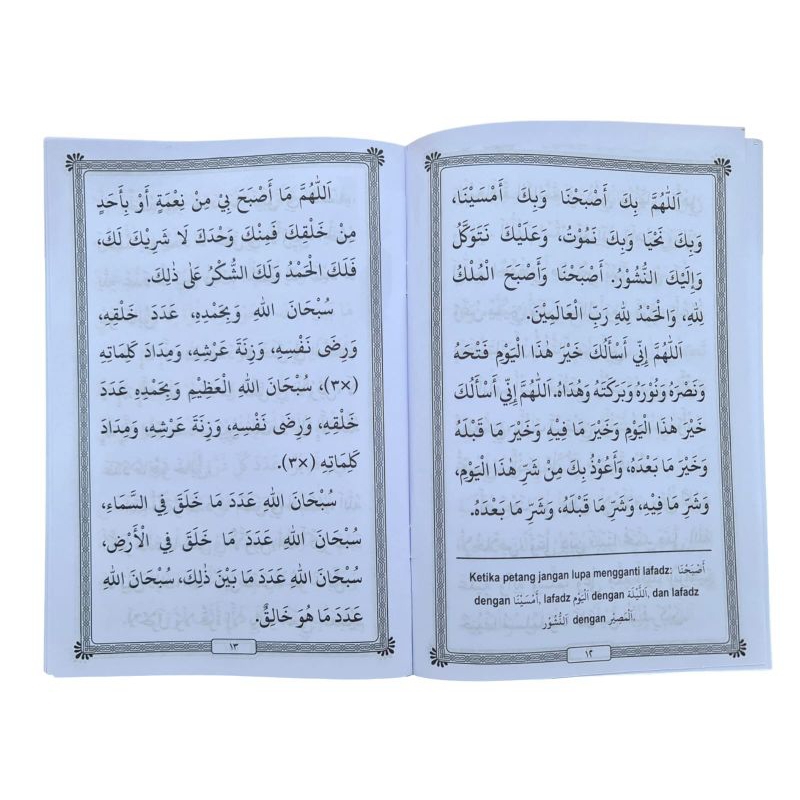 اَللّٰهُمَّ بِكَ أَصْبَحْنَا وَبِكَ أَمْسَيْنَا،
وَبِكَ نَحْيَا وَبِكَ نَمُوْتُ، وَعَلَيْكَ نَتَوَكَّلُ
وَإِلَيْكَ النُّشُوْرُ. أَصْبَحْنَا وَأَصْبَحَ الْمُلْكُ
لِلّٰهِ، وَالْحَمْدُ لِلّٰهِ رَبِّ الْعَالَمِيْنَ.
اَللّٰهُمَّ إِنِّي أَسْأَلُكَ خَيْرَ هٰذَا الْيَوْمِ فَتْحَهُ
وَنَصْرَهُ وَنُوْرَهُ وَبَرَكَتَهُ وَهُدَاهُ. اَللّٰهُمَّ إِنِّي أَسْأَلُكَ
خَيْرَ هٰذَا الْيَوْمِ وَخَيْرَ مَا فِيْهِ وَخَيْرَ مَا قَبْلَهُ
وَخَيْرَ مَا بَعْدَهُ، وَأَعُوْذُ بِكَ مِنْ شَرِّ هٰذَا الْيَوْمِ،
وَشَرِّ مَا فِيْهِ، وَشَرِّ مَا قَبْلَهُ، وَشَرِّ مَا بَعْدَهُ.
Ketika petang jangan lupa mengganti lafadz: أَصْبَحْنَا
dengan أَمْسَيْنَا, lafadz اَلْيَوْمِ dengan اَللَّيْلَةِ, dan lafadz
اَلنُّشُوْر dengan اَلْمَصِيْر.
١٢
اَللّٰهُمَّ مَا أَصْبَحَ بِيْ مِنْ نِعْمَةٍ أَوْ بِأَحَدٍ
مِنْ خَلْقِكَ فَمِنْكَ وَحْدَكَ لَا شَرِيْكَ لَكَ،
فَلَكَ الْحَمْدُ وَلَكَ الشُّكْرُ عَلَى ذٰلِكَ.
سُبْحَانَ اللهِ وَبِحَمْدِهِ، عَدَدَ خَلْقِهِ،
وَرِضَى نَفْسِهِ، وَزِنَةَ عَرْشِهِ، وَمِدَادَ كَلِمَاتِهِ
(×٣)، سُبْحَانَ اللهِ الْعَظِيْمِ وَبِحَمْدِهِ عَدَدَ
خَلْقِهِ، وَرِضَى نَفْسِهِ، وَزِنَةَ عَرْشِهِ، وَمِدَادَ
كَلِمَاتِهِ (×٣).
سُبْحَانَ اللهِ عَدَدَ مَا خَلَقَ فِي السَّمَاءِ،
سُبْحَانَ اللهِ عَدَدَ مَا خَلَقَ فِي الْأَرْضِ،
سُبْحَانَ اللهِ عَدَدَ مَا بَيْنَ ذٰلِكَ، سُبْحَانَ اللهِ
عَدَدَ مَا هُوَ خَالِقٌ.
١٣